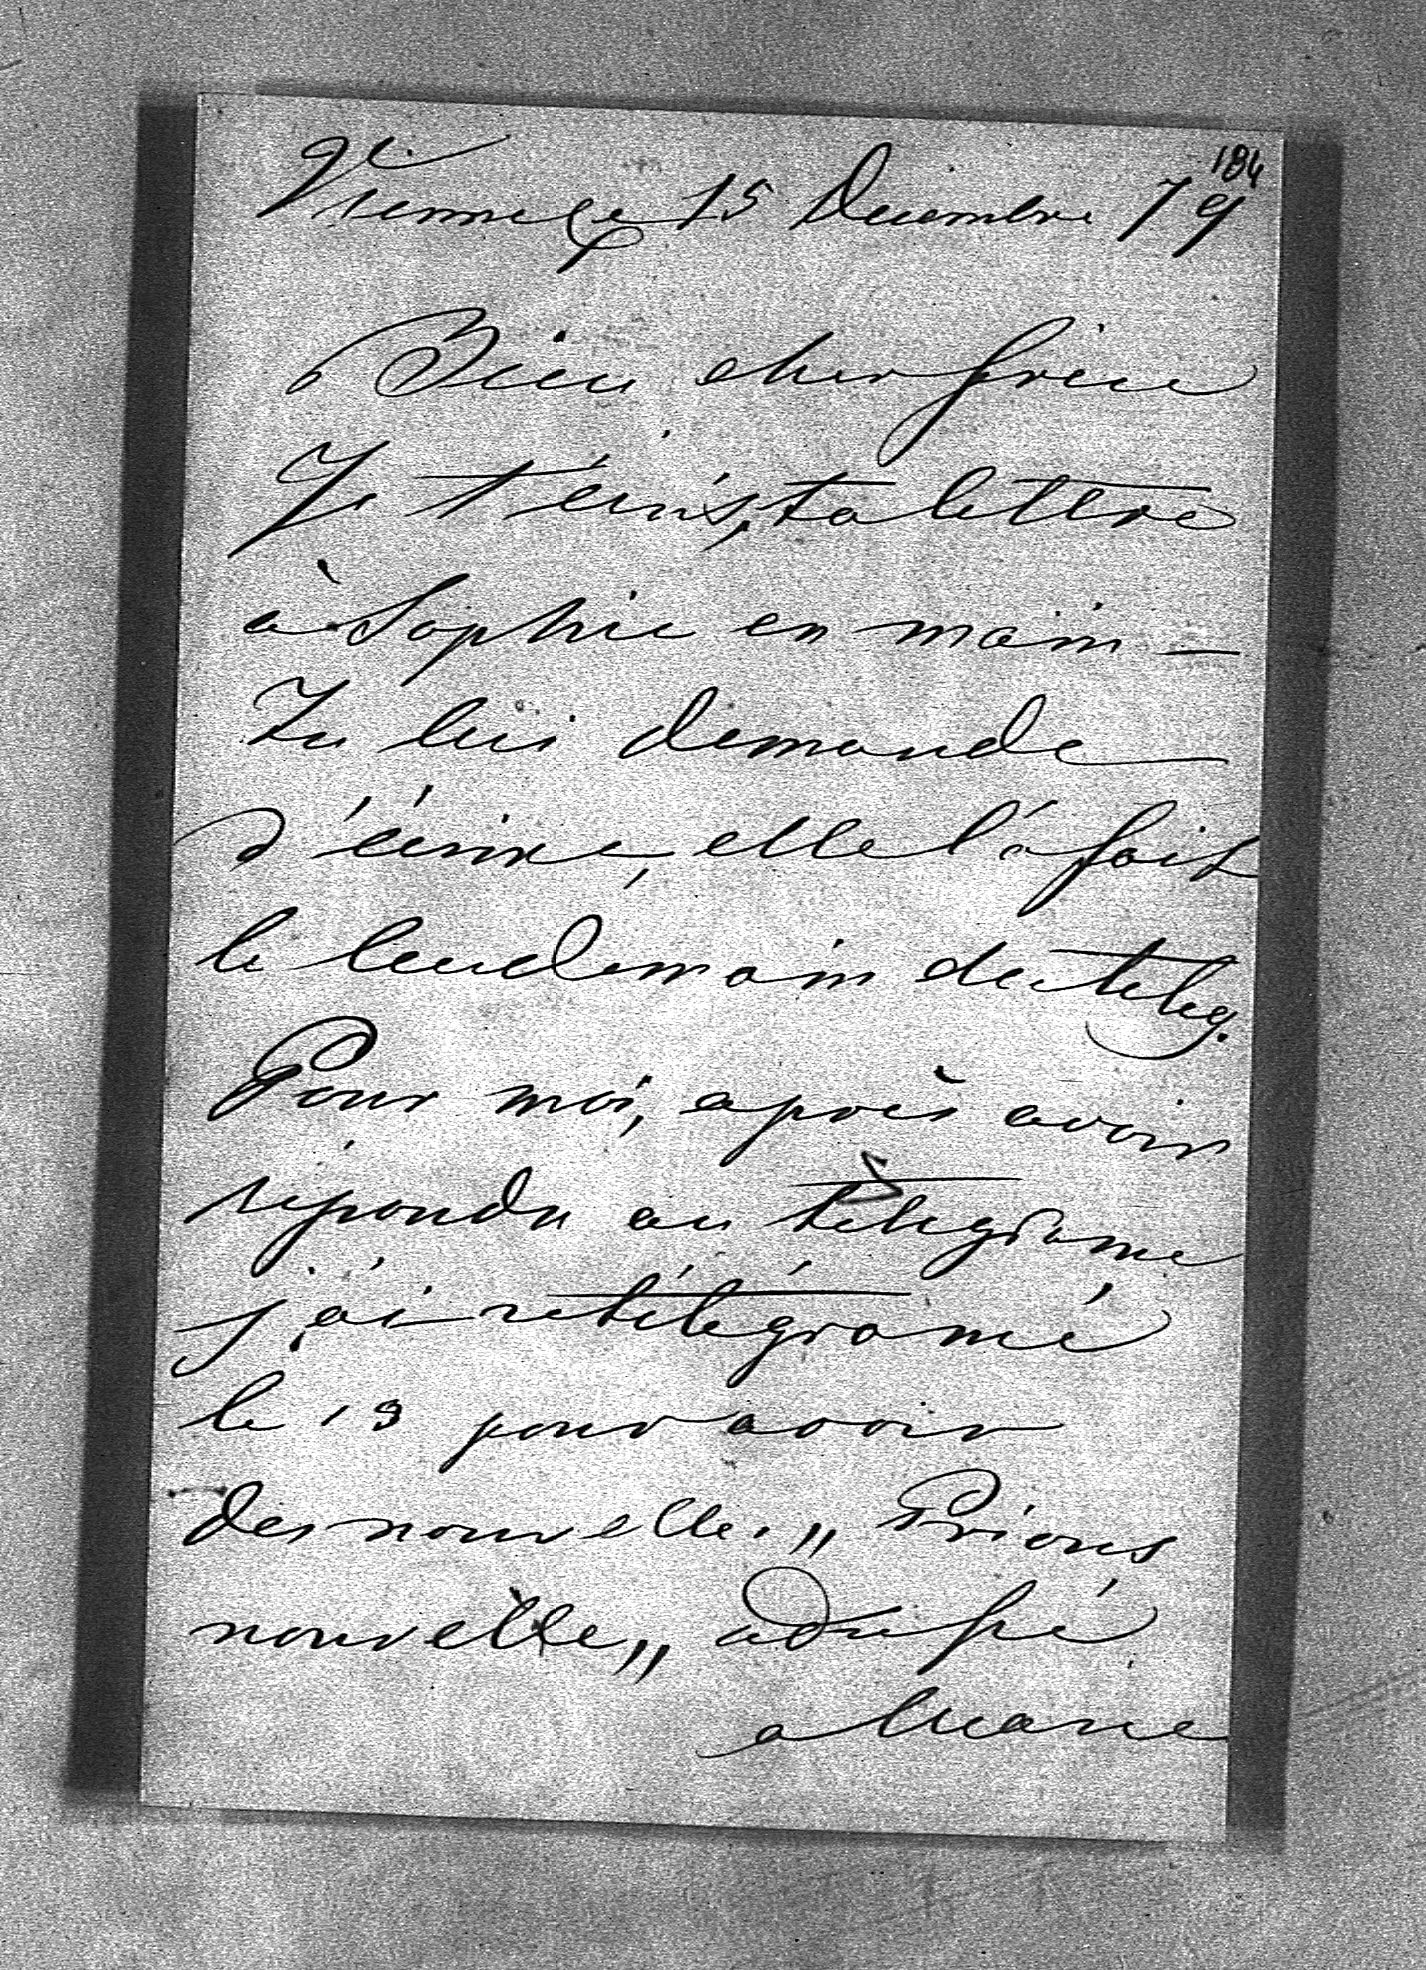 184
Vienne le 15 Decembre 79
Bien cher frère
Je t'écris, ta lettre
à Sophie en main —
Tu lui demande
d'écrire, elle l'a fait
le lendemain du teleg.
Pour moi, après avoir
répondu au télegrame
j'ai retélégramé
le 13 pour avoir
des nouvelle. „ Prions
nouvelle „
a Marie